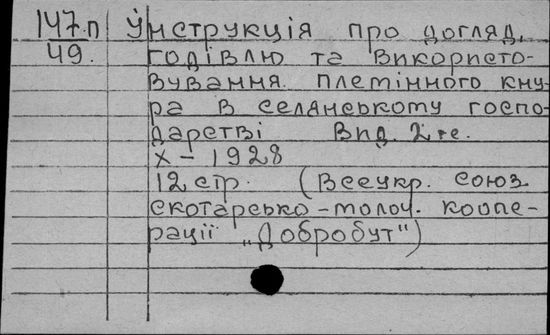 147.п Інструкція про догляд,
49. годівлю та використо-
вування племінного кну-
ра в селянському госпо-
дарстві Вид. 2-ге.
Х – 1928
12 стр. (Всеукр. союз
скотарсько-молоч. коопе-
рації „Добробут")